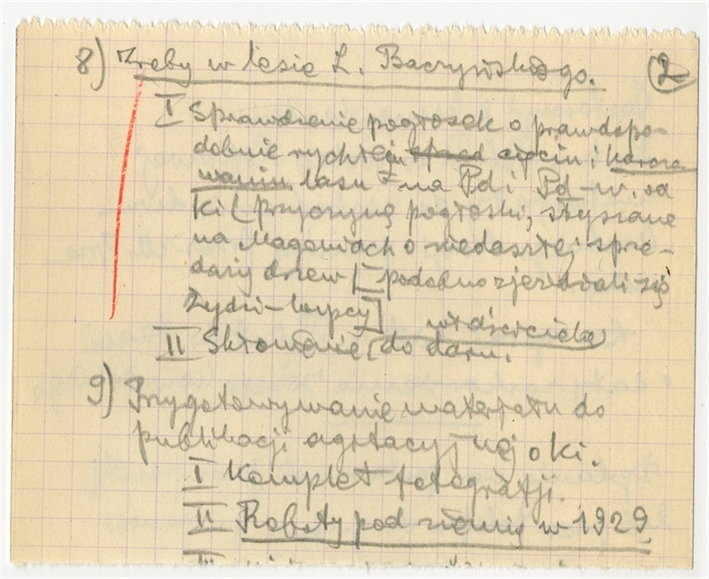 8) Zręby w lesie L. Baczyńskiego. (2)
I Sprawdzenie pogłosek o prawdopo-
dobnie rychłem cięciu i karczo
waniu lasu na Pd i Pd-w. od
ki (przyczyną pogłoski, słyszane
na Magoniach o niedoszłej sprze-
daży drzew [podobno zjeżdżali się
Żydzi-kupcy]
II Skłonienie właściciela do daru.
9) Przygotowywanie materjału do
publikacji agitacyjnej o ki.
I Komplet fotografji.
II Roboty pod ziemią w 1929